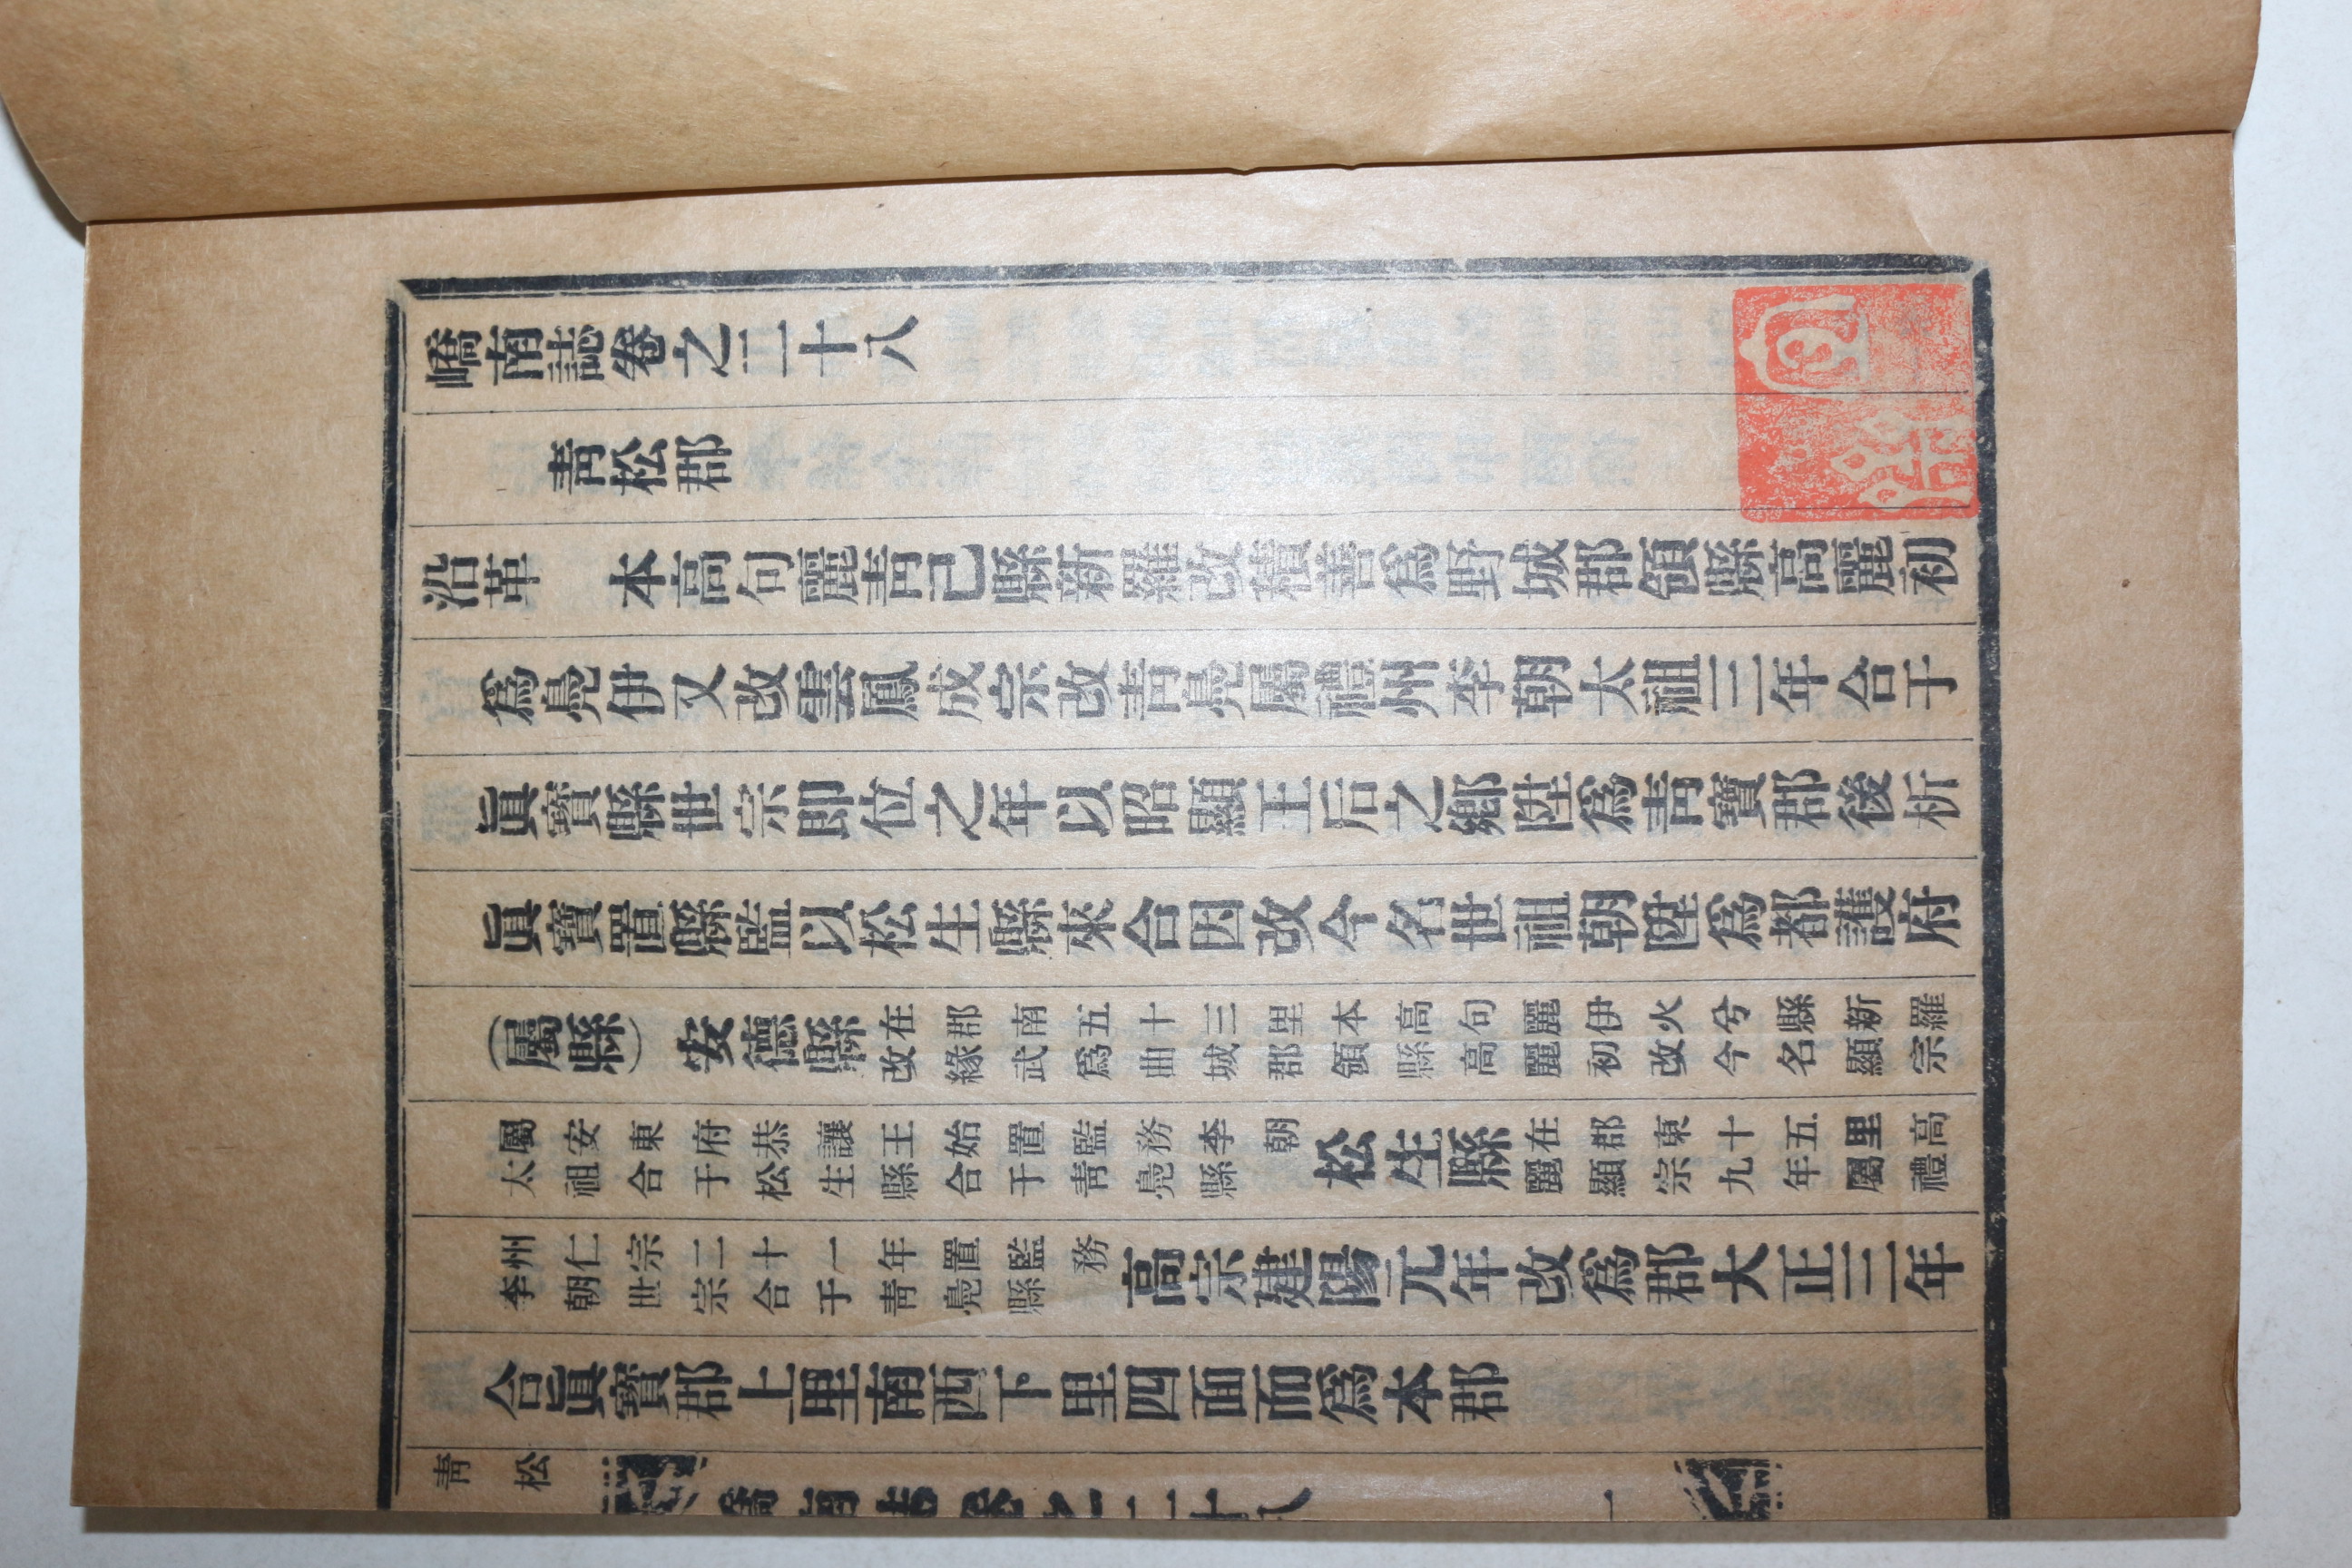 嶠南誌卷之二十八
靑松郡
沿革　本高句麗靑己縣新羅改積善爲野城郡領縣高麗初
爲鳧伊又改雲鳳成宗改靑鳧屬禮州李朝太祖三年合于
眞寶縣世宗即位之年以昭顯王后之鄕陞爲靑寶郡後析
眞寶置縣監以松生縣來合因改今名世祖朝陞爲都護府
（屬縣）安德縣
在郡南五十三里本高句麗伊火兮縣新羅
改緣武爲曲城郡領縣高麗初改今名顯宗
屬安東府恭讓王始置監務李朝
太祖合于松生縣合于靑鳧縣
松生縣
在郡東十五里高
麗顯宗九年屬禮
州仁宗二十一年置監務
李朝世宗合于靑鳧縣
高宗建陽元年改爲郡大正三年
合眞寶郡上里南西下里四面而爲本郡
靑松
嶠南誌卷之二十八
一